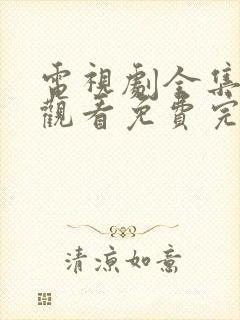 電視劇全集
觀看免費完
清涼如意